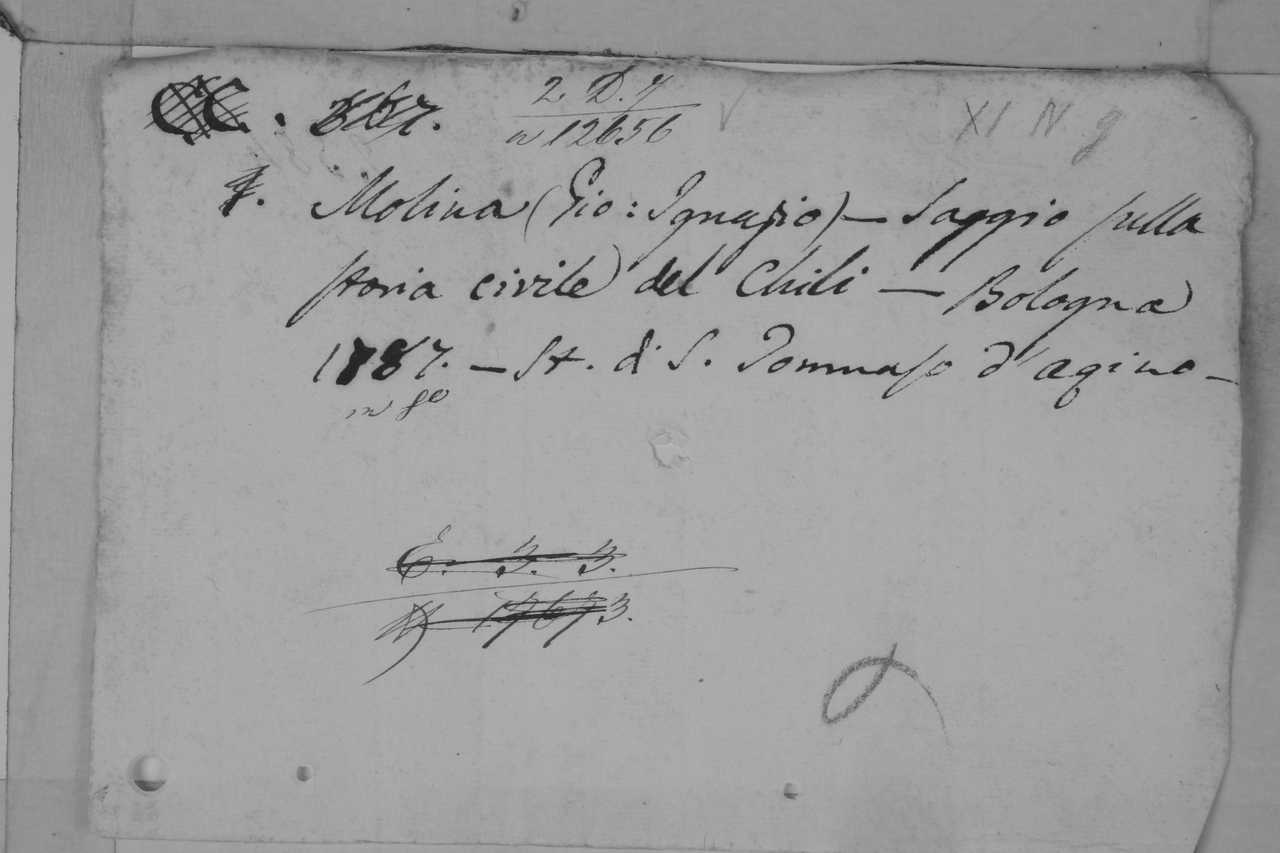 CC. 2. D. 7 XI N g
n 12656
4. Molina (Gio: Ignazio) — Saggio sulla
storia civile del Chili — Bologna
1787. — St. di S. Tommaso d'aqino —
in 8o
E. 3. 3.
N 17673.